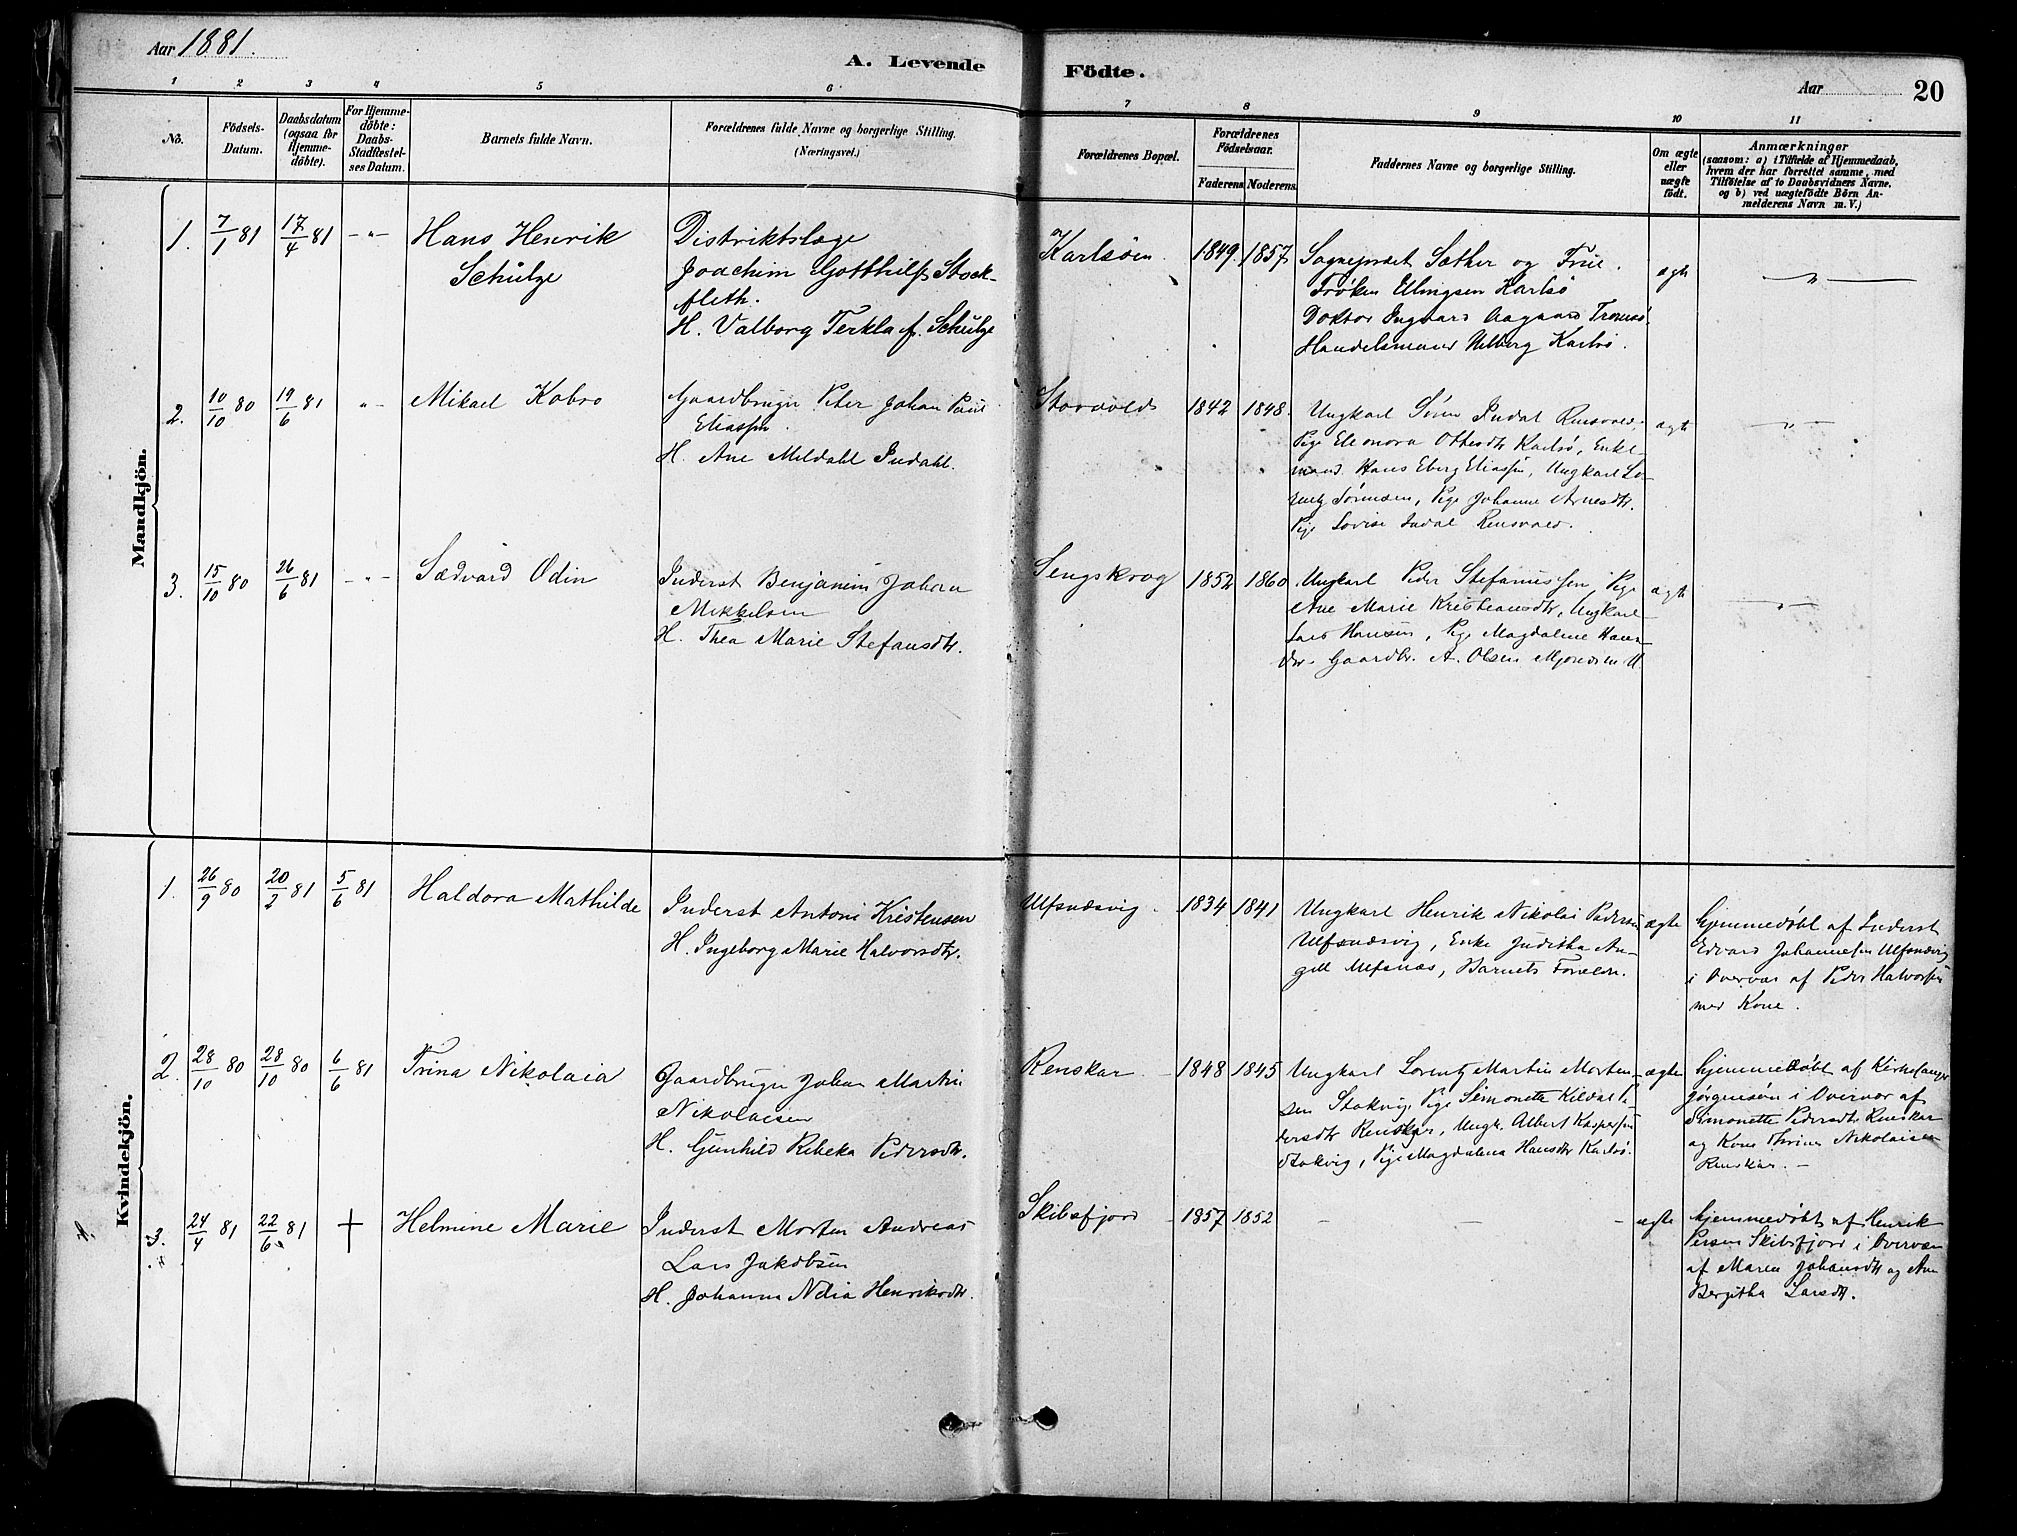 Aar 1881.
A. Levende
Födte.
Aar
20
1 2 3 4 5 6 7 8 9 10 11
No.
Födsels-
Datum.
Daabsdatum
(ogsaa for
Hjemme-
döbte).
For Hjemme-
döbte:
Daabs-
Stadfæstel-
ses Datum.
Barnets fulde Navn.
Forældrenes fulde Navne og borgerlige Stilling.
(Næringsvei.)
Forældrenes Bopæl.
Forældrenes
Födselsaar.
Faderens. Moderens.
Faddernes Navne og borgerlige Stilling.
Om ægte
eller
uægte
födt.
Anmærkninger
(saasom: a) i Tilfælde af Hjemmedaab,
hvem der har forrettet samme, med
Tilföielse af to Daabsvidners Navne.
og b) ved uægtefödte Börn An-
melderens Navn m. V.)
Mandkjön.
1. 7/1 81 17/4 81 -"- Hans Henrik
Schulze
Distriktslæge
Joachim Gotthilf Stock-
fleth.
H. Valborg Terkla f. Schulze
Karlsöen. 1849. 1857.
Sogneprest Sæther og Frue.
Frøken Ellingsen Karlsö
Doktor Ingvard Aagaard Tromsö.
Handelsmand Karlsö.
ægte "
2. 10/10 80 19/6 81 " Mikael Kobro
Gaardbruger Peter Johan Paul
Eliassen.
H. Ane Meldahl Indahl.
1842 1848.
Ungkarl Sören Indal Rensvold.
Pige Eleonora Ottesdtr Karlsö, Enke-
mand Hans Eberg Eliassen, Ungkarl Lo-
rentz Sörensen, Pige Johanne Arnesdtr.
Pige Lovise Indal Rensvold.
ægte "
3. 15/10 80 26/6 81 -"- Sædvard Odin
Inderst Benjamin Johan
Mikkelsen
H. Thea Marie Stefansdtr.
Lengskrog 1852 1860
Ungkarl Peder Stefanussen, Pige
Ane Marie Kristiansdtr, Ungkarl
Lars Hansen, Pige Magdalene Hans-
dtr. Gaardbr. A. Olsen
ægte "
Kvindekjön.
1. 26/9 80 20/2 81 5/6 81 Haldora Mathilde
Inderst Antoni Kristensen
H. Ingeborg Marie Halvorsdtr.
Ulfsnæsvig. 1834 1841
Ungkarl Henrik Nikolai Pedersen
Ulfsnæsvig, Enke Juditha An-
gell Ulfsnæs, Barnets Forældr.
ægte
hjemmedøbt af Inderst
Edvard Johannesen Ulfsnæsvig
i Overvær af Peder Halvorsen
med Kone.
2. 28/10 80 28/10 80 6/6 81 Trina Nikolaia
Gaardbruger Johan Martin
Nikolaisen
H. Gunhild Rebeka Pedersdtr.
Renskar 1848 1845
Ungkarl Lorentz Martin Morten-
sen Stakvig, Pige Simonette Kildal Pe-
dersdtr Renskar, Ungk. Albert Kaspersen
Stakvig, Pige Magdalena Hansdtr Karlsö.
ægte
hjemmedøbt af Kirkesanger
Jörgensön i Overvær af
Simonette Pedersdtr Renskar
og Kone Thrine Nikolaisen
Renskar. -
3. 24/4 81 22/6 81 † Helmine Marie
Inderst Morten Andreas
Lars Jakobsen
H. Johanna Henriksdtr.
Skibsfjord 1857 1852 - - -
ægte
hjemmedøbt af Henrik
Persen Skibsfjord i Overvær
af Maren Johansdtr og Ane
Bergitha Larsdtr.